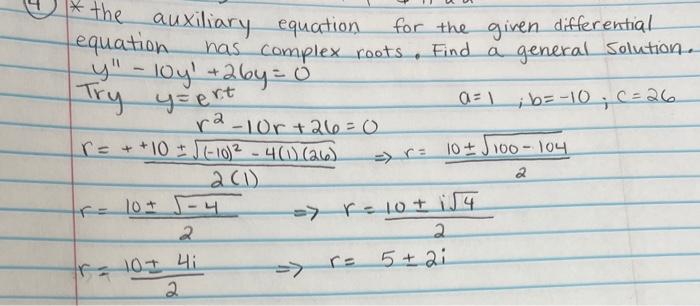 4 * the auxiliary equation for the given differential
equation has complex roots. Find a general solution.
y'' - 10y' + 26y = 0
Try y = e^rt a=1 ; b=-10 ; c=26
r² - 10r + 26 = 0
r = + +10 ± √(-10)² - 4(1)(26) / 2(1) => r = 10 ± √100 - 104 / 2
r = 10 ± √-4 / 2 => r = 10 ± i√4 / 2
r = 10 ± 4i / 2 => r = 5 ± 2i